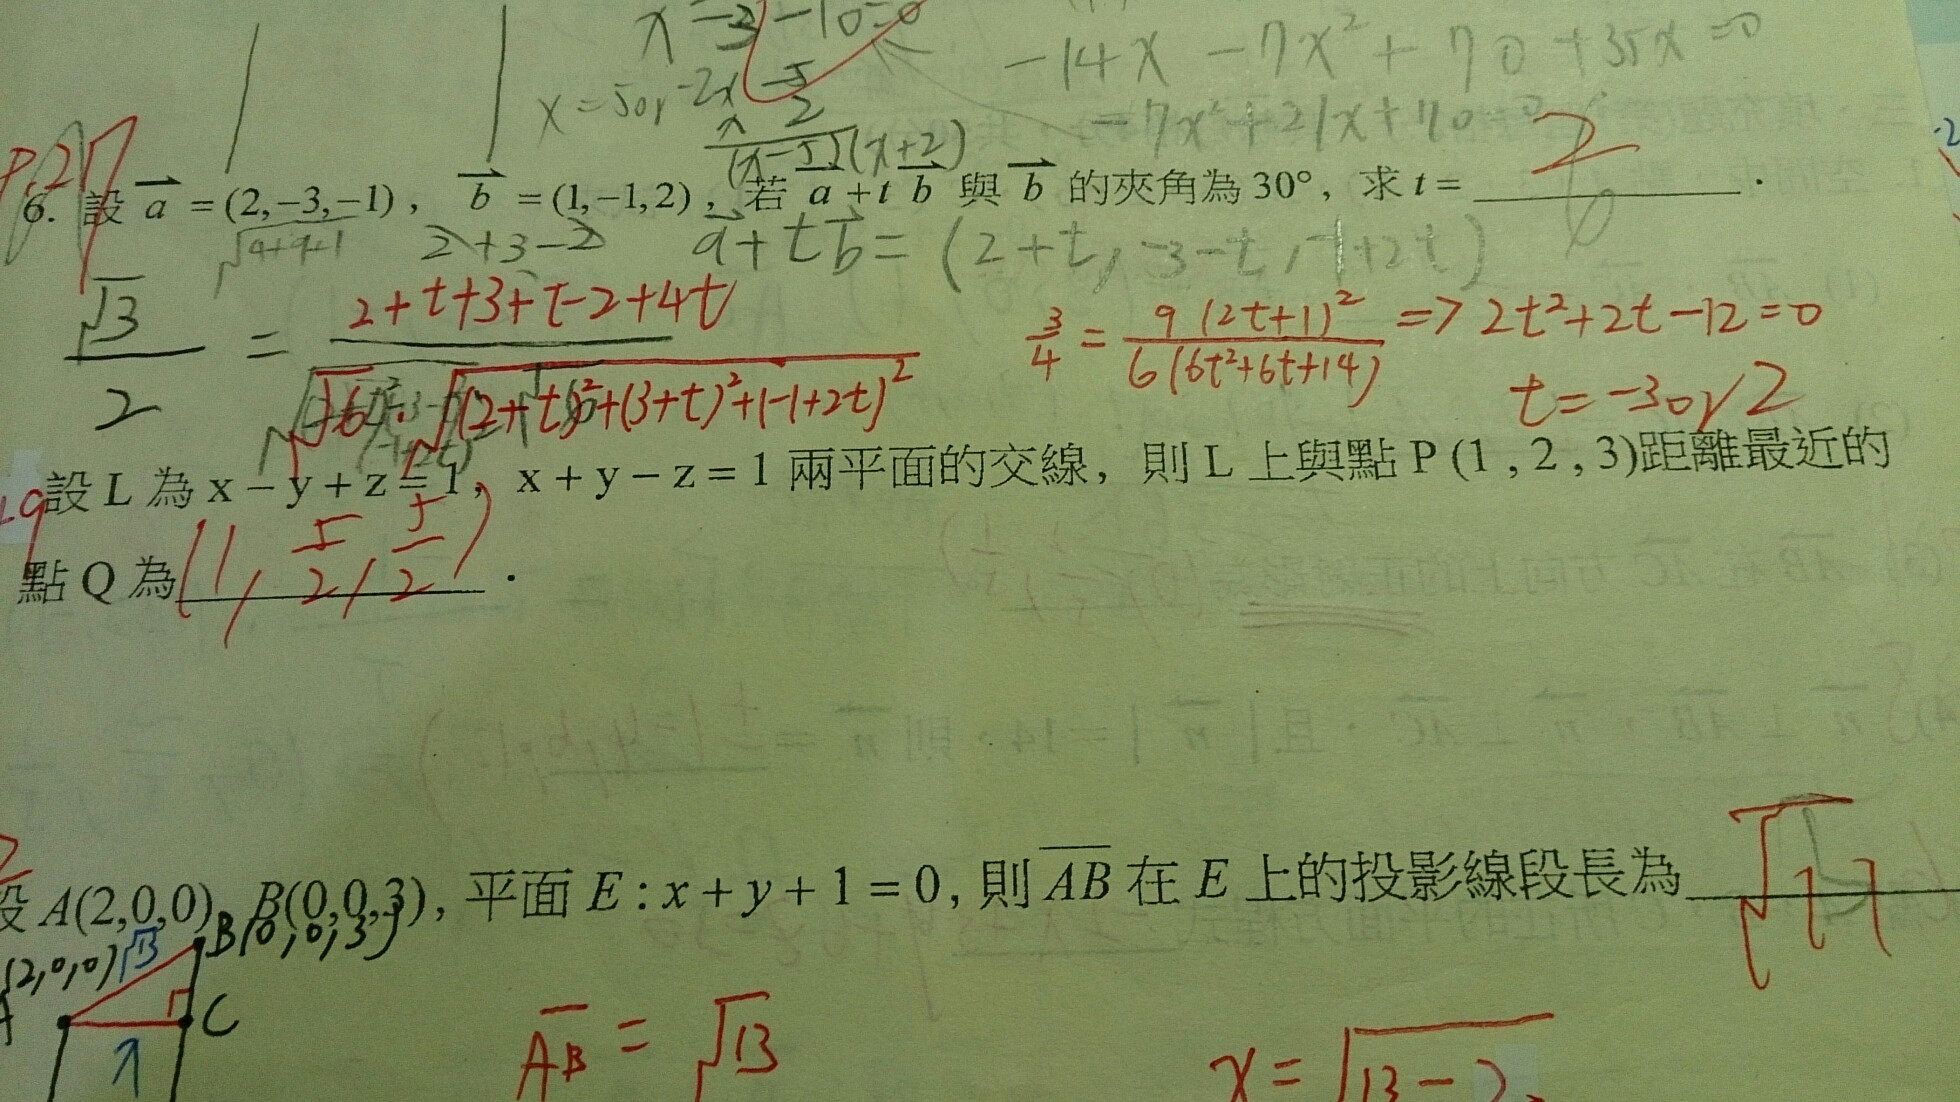 x²-3x-10=0
-14x-7x²+70+35x=0
x=5or-2
x -5
x 2
=7x²+21x+70=0
(x-5)(x+2)
P.27
6. 設 a = (2,-3,-1), b = (1,-1,2), 若 a + t b 與 b 的夾角為 30°, 求 t = 2.
√4+9+1 2+3-2 a+tb=(2+t,-3-t,-1+2t)
√3/2 = (2+t+3+t-2+4t)/(√6·√(2+t)²+(3+t)²+(-1+2t)²)
3/4 = 9(2t+1)²/6(6t²+6t+14) => 2t²+2t-12=0
t=-3or2
設 L 為 x-y+z=1, x+y-z=1 兩平面的交線, 則 L 上與點 P (1, 2, 3)距離最近的
點 Q 為 (1, 5/2, 5/2).
設 A(2,0,0), B(0,0,3), 平面 E: x+y+1=0, 則 AB 在 E 上的投影線段長為 √11
B(0,0,3)
(2,0,0) √13
A C
x
AB = √13
x=√13-2